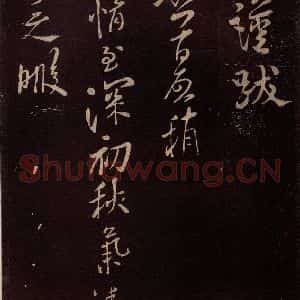 謹跋
百
稍
情至深初秋氣
之暇
Shufawang.CN